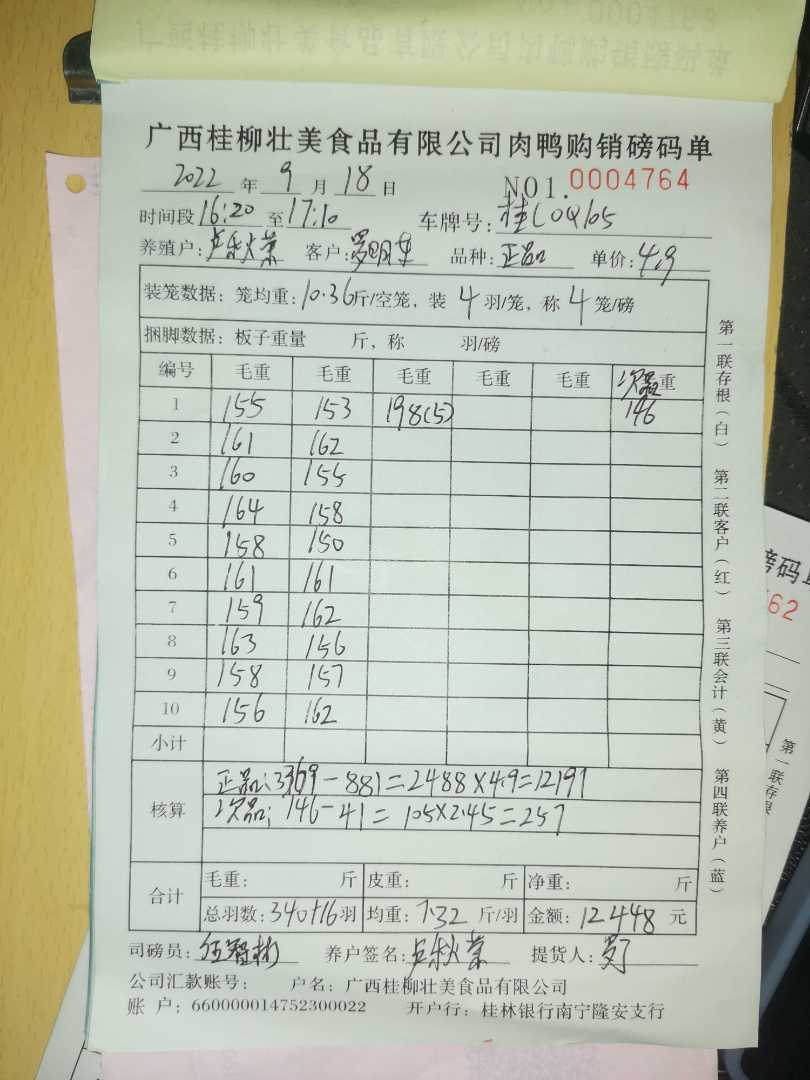 广西桂柳壮美食品有限公司肉鸭购销磅码单
2022 年 9 月 18 日 NO1. 0004764
时间段 16:20 至 17:10 车牌号: 桂C0Q105
养殖户: 卢秋菜 客户: 罗明 品种: 正品 单价: 4.9
装笼数据: 笼均重: 10.36 斤/空笼, 装 4 羽/笼, 称 4 笼/磅
捆脚数据: 板子重量 斤, 称 羽/磅
编号 毛重 毛重 毛重 毛重 毛重 次品重
1 155 153 198(5) 146
2 161 162
3 160 155
4 164 158
5 158 150
6 161 161
7 159 162
8 163 156
9 158 157
10 156 162
小计
核算
正品: 3369-881=2488×4.9=12191
次品: 146-41= 105×2.45=257
合计
毛重: 斤 皮重: 斤 净重: 斤
总羽数: 340+16 羽 均重: 7.32 斤/羽 金额: 12448 元
司磅员: 伍智彬 养户签名: 卢秋菜 提货人: 罗
公司汇款账号: 户名: 广西桂柳壮美食品有限公司
账 户: 660000014752300022 开户行: 桂林银行南宁隆安支行
第一联存根(白) 第二联客户(红) 第三联会计(黄) 第四联养户(蓝)
磅码单
62
第一联存根